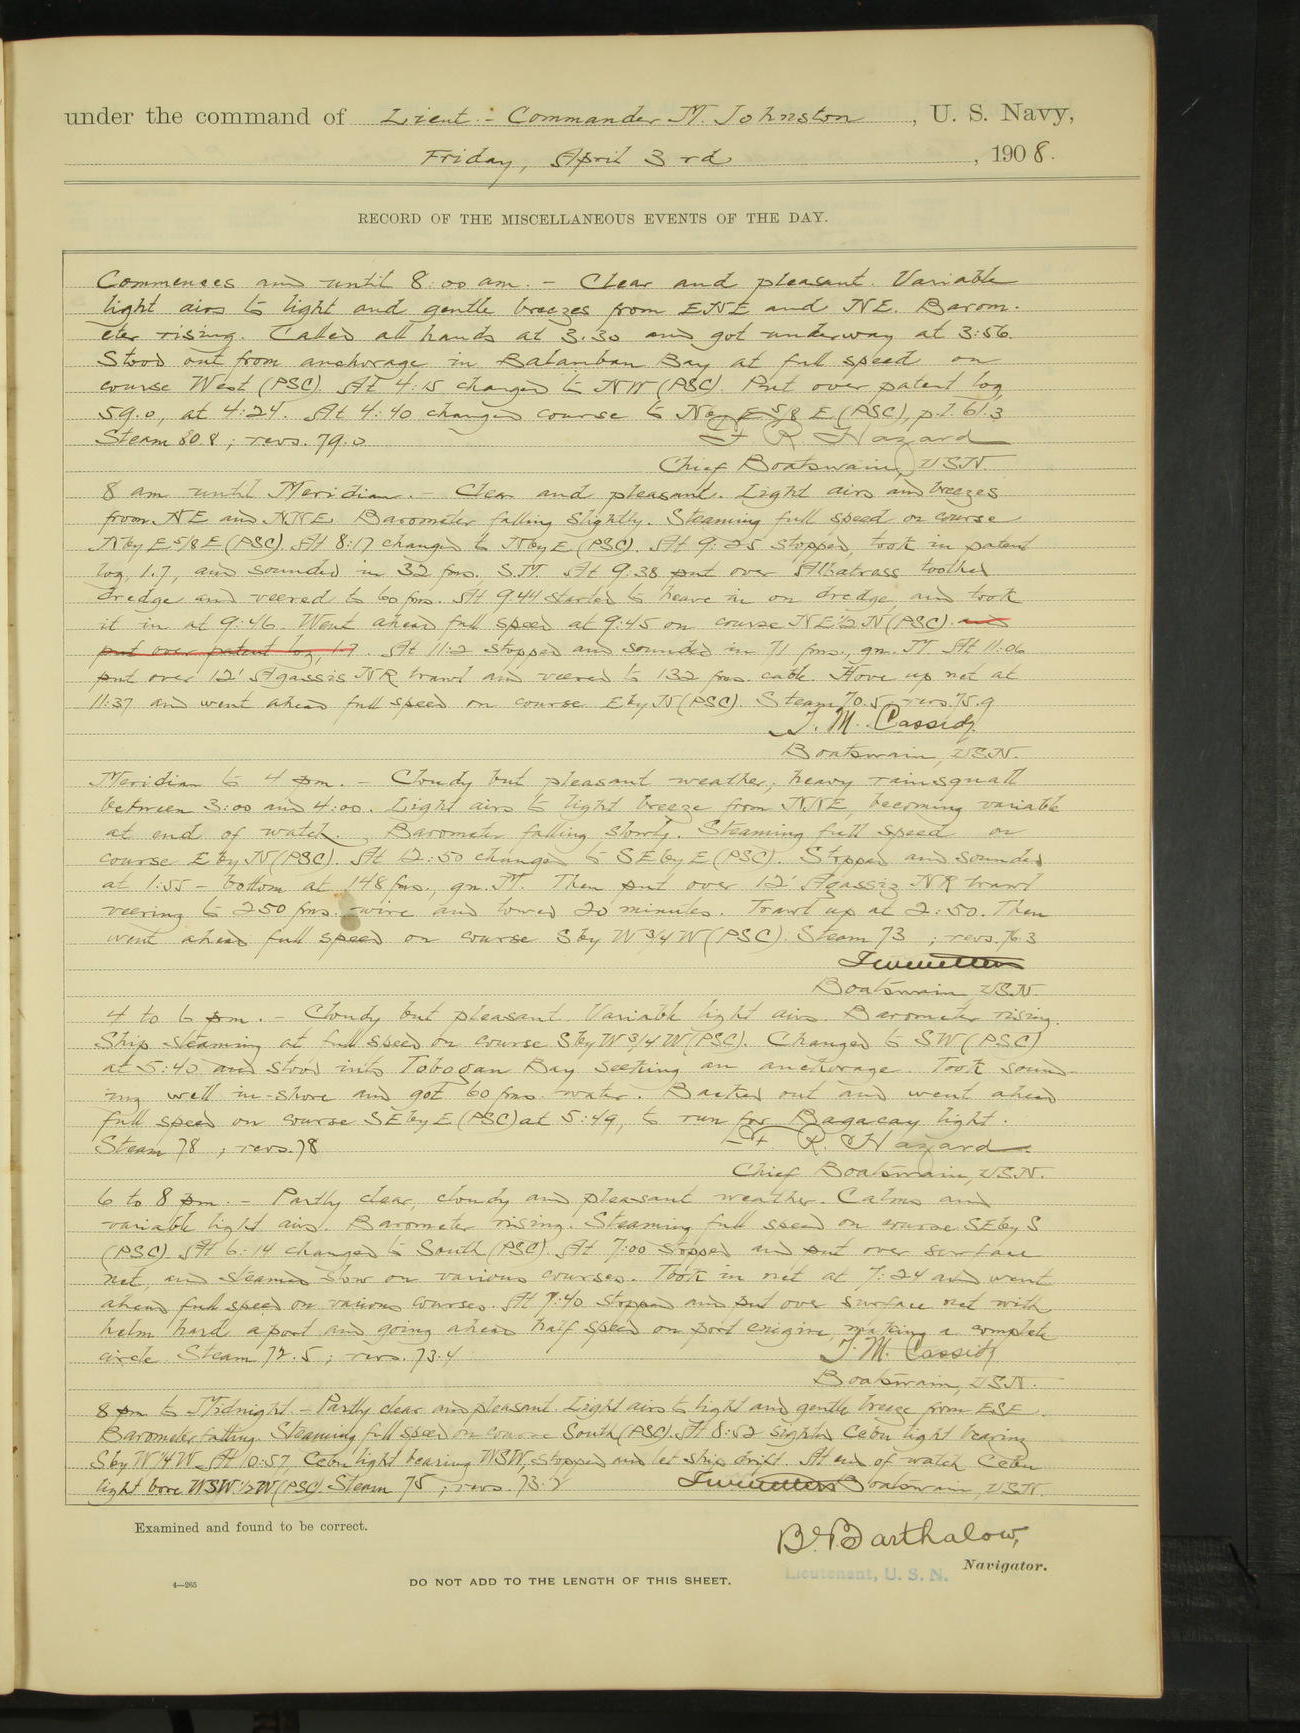 under the command of Lieut.-Commander M. Johnston, U. S. Navy,
Friday, April 3rd, 1908.
RECORD OF THE MISCELLANEOUS EVENTS OF THE DAY.
Commences and until 8:00 am. - Clear and pleasant. Variable
light airs to light and gentle breezes from ENE and NE. Barom-
eter rising. Called all hands at 3:30 and got underway at 3:56.
Stood out from anchorage in Balamban Bay at full speed on
course West (PSC). At 4:15 changed to NW (PSC). Put over patent log,
59.0, at 4:24. At 4:40 changed course to N by E 5/8 E (PSC), p.l. 61.3
Steam 80.8; revs. 79.0 F R Hazard
Chief Boatswain, USN.
8 am until Meridian. - Clear and pleasant. Light airs and breezes
from NE and NNE. Barometer falling slightly. Steaming full speed on course
N by E 5/8 E (PSC). At 8:17 changed to N by E (PSC). At 9:25 stopped, took in patent
log, 1.7, and sounded in 32 fms., S.M. At 9:38 put over Albatross toothed
dredge and veered to 60 fms. At 9:44 started to heave in on dredge, and took
it in at 9:46. Went ahead full speed at 9:45 on course NE 1/2 N (PSC) and
put over patent log, 1.7. At 11:2 stopped and sounded in 71 fms., gn. M. At 11:06
put over 12' Agassis NR trawl and veered to 132 fms. cable. Hove up net at
11:37 and went ahead full speed on course E by N (PSC). Steam 70.5; revs. 75.9
T. M. Cassidy
Boatswain, USN.
Meridian to 4 pm. - Cloudy but pleasant weather; heavy rainsquall
between 3:00 and 4:00. Light airs to light breeze from NNE, becoming variable
at end of watch. Barometer falling slowly. Steaming full speed on
course E by N (PSC). At 12:50 changed to SE by E (PSC). Stopped and sounded
at 1:55 - bottom at 148 fms., gn. M. Then put over 12' Agassiz NR trawl
veering to 250 fms. wire and towed 20 minutes. Trawl up at 2:50. Then
went ahead full speed on course S by W 3/4 W (PSC). Steam 73; revs. 76.3
Boatswain USN
4 to 6 pm. - Cloudy but pleasant. Variable light airs. Barometer rising.
Ship steaming at full speed on course S by W 3/4 W (PSC). Changed to SW (PSC)
at 5:40 and stood into Tobogan Bay seeking an anchorage. Took sound-
ing well in-shore and got 60 fms. water. Backed out and went ahead
full speed on course SE by E (PSC) at 5:49, to run for Bagacay light.
Steam 78; revs. 78 F. R. Hazard
Chief Boatswain, USN.
6 to 8 pm. - Partly clear, cloudy and pleasant weather. Calms and
variable light airs. Barometer rising. Steaming full speed on course SE by S
(PSC). At 6:14 changed to South (PSC). At 7:00 stopped and put over surface
net, and steamed slow on various courses. Took in net at 7:24 and went
ahead full speed on various courses. At 7:40 stopped and put over surface net with
helm hard aport and going ahead half speed on port engine, making a complete
circle. Steam 72.5; revs. 73.4 T. M. Cassidy
Boatswain, USN.
8 pm to Midnight. - Partly clear and pleasant. Light airs to light and gentle breeze from ESE.
Barometer falling. Steaming full speed on course South (PSC). At 8:52 sighted Cebu light bearing
S by W 1/4 W. At 10:57 Cebu light bearing WSW, stopped and let ship drift. At end of watch Cebu
light bore WSW 1/2 W (PSC) Steam 75; revs. 73.7 Boatswain, USN.
Examined and found to be correct.
B. Barthalow,
Lieutenant, U. S. N. Navigator.
4—265
DO NOT ADD TO THE LENGTH OF THIS SHEET.